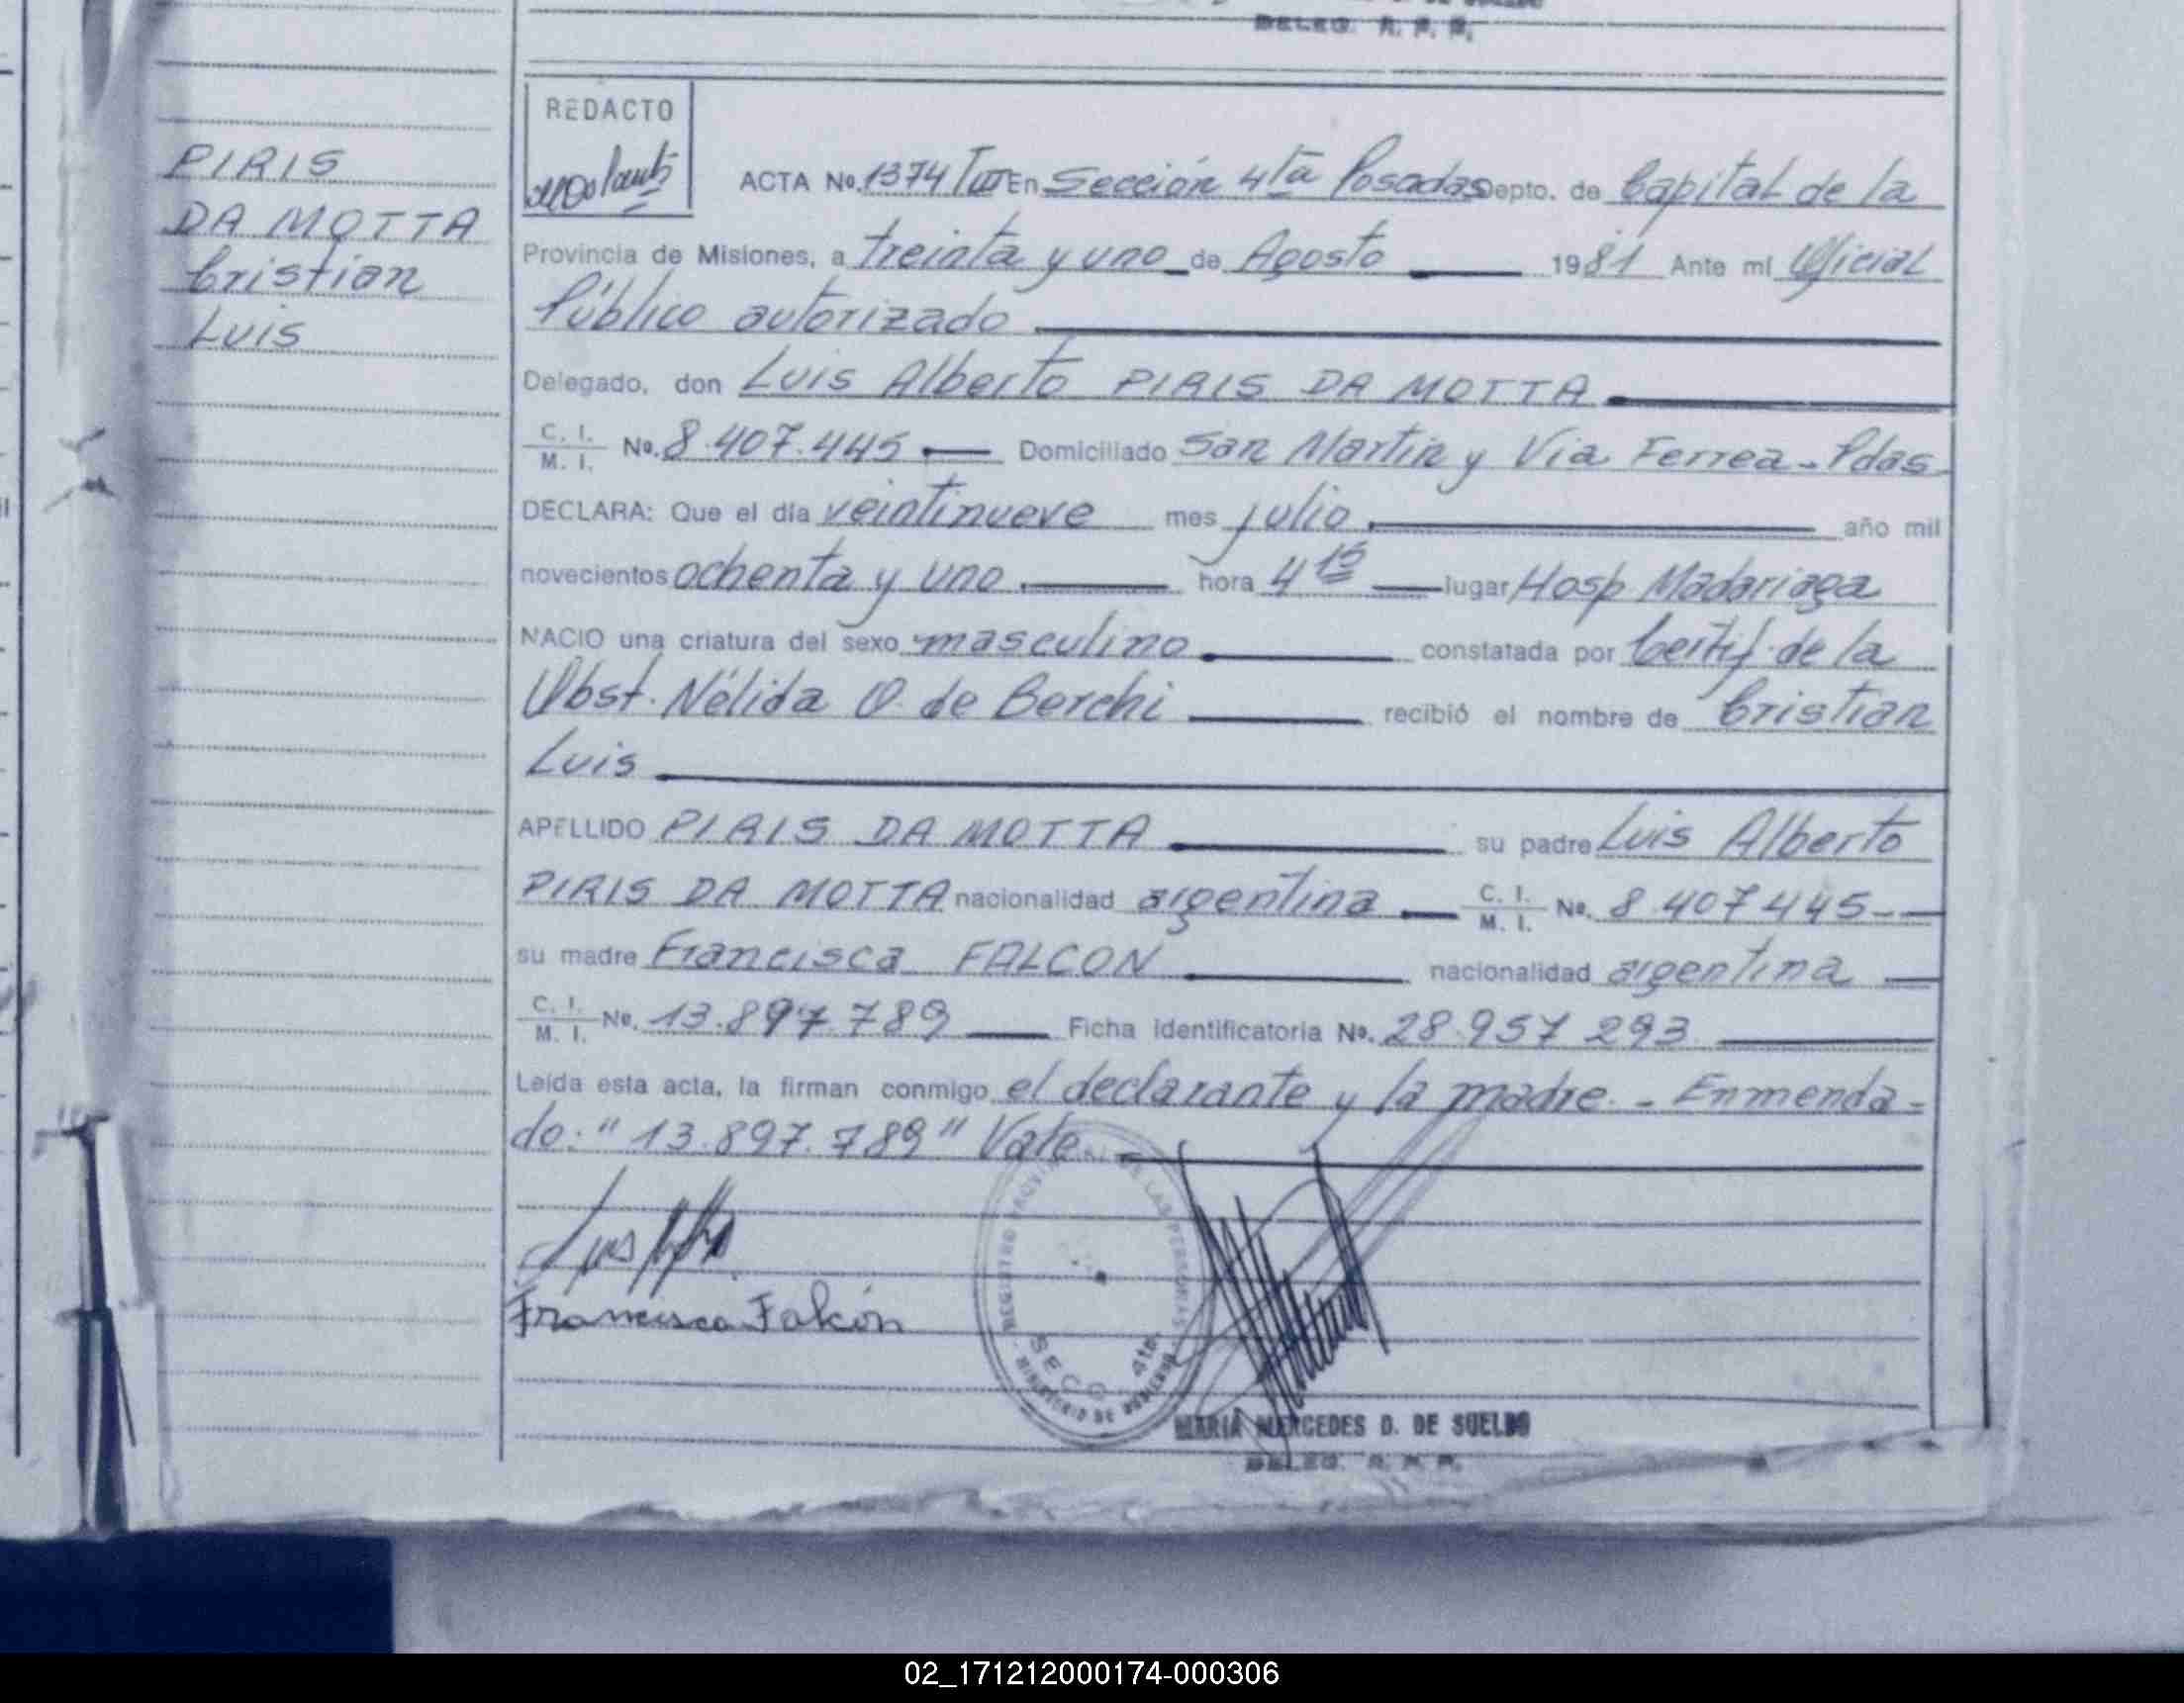 DELEG. R. P. P.
PIRIS
DA MOTTA
Cristian
Luis
REDACTO
ACTA No. 1374 En Sección 4ta Posadas Depto. de Capital de la
Provincia de Misiones, a treinta y uno de Agosto 1981 Ante mi Oficial
Público autorizado
Delegado, don Luis Alberto PIRIS DA MOTTA
C. I. M. I. No. 8.407.445 Domiciliado San Martin y Via Ferrea - Pdas.
DECLARA: Que el día veintinueve mes julio año mil
novecientos ochenta y uno hora 4 15 lugar Hosp. Madariaga
NACIO una criatura del sexo masculino constatada por Certif. de la
Obst. Nélida O. de Berchi recibió el nombre de Cristian
Luis
APELLIDO PIRIS DA MOTTA su padre Luis Alberto
PIRIS DA MOTTA nacionalidad argentina C. I. M. I. No. 8.407.445
su madre Francisca FALCON nacionalidad argentina
C. I. M. I. No. 13.897.789 Ficha identificatoria No. 28.957.293
Leída esta acta, la firman conmigo el declarante y la madre. - Enmenda-
do: "13.897.789" Vale
Francisca Falcón
REGISTRO PROVINCIAL DE LAS PERSONAS
SECC. 4ta.
MINISTERIO DE GOBIERNO
MARIA MERCEDES D. DE SUELDO
DELEG. R. P. P.
02_171212000174-000306